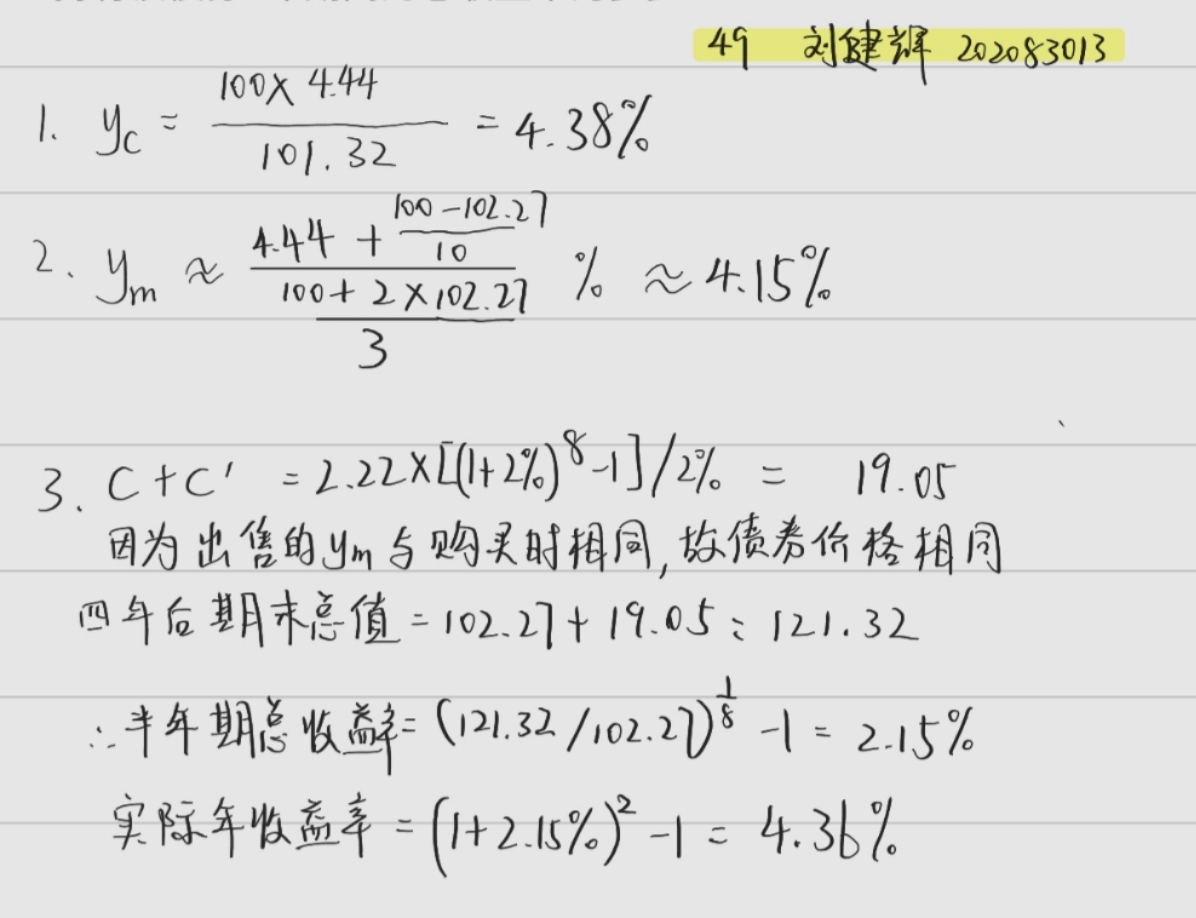 49 刘健辉 202083013
1. yc = 100×4.44/101.32 = 4.38%
2、ym ≈ (4.44 + (100-102.27)/10)/((100+2×102.27)/3) % ≈ 4.15%
3. C+C' = 2.22×[(1+2%)^8-1]/2% = 19.05
因为出售的ym与购买时相同,故债券价格相同
四年后期末总值=102.27+19.05=121.32
∴半年期总收益率=(121.32/102.27)^(1/8)-1=2.15%
实际年收益率=(1+2.15%)^2-1=4.36%